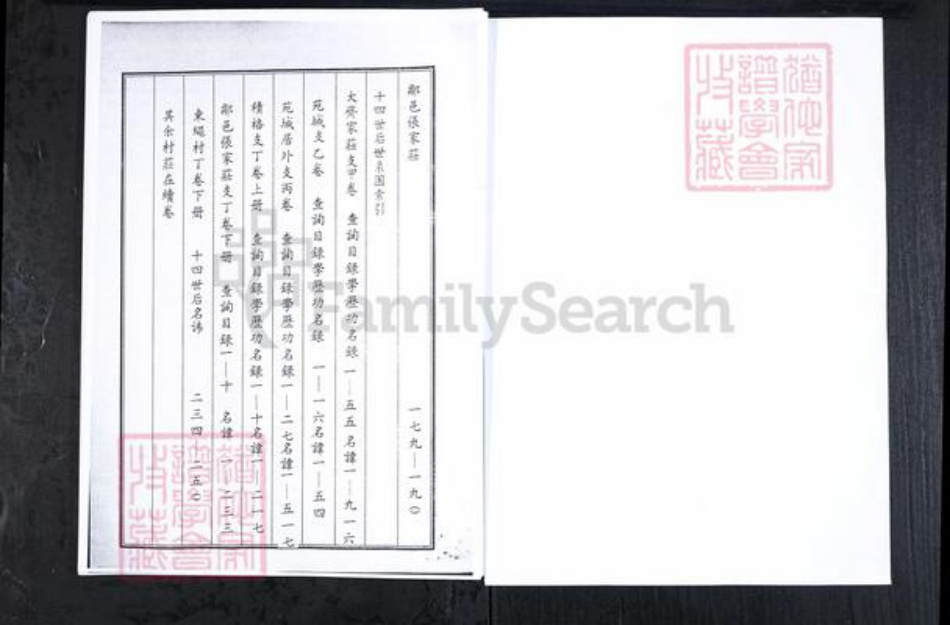 鄒邑張家莊 一七九—一九〇
十四世后世系图索引
大齊家莊支甲卷 查詢目錄學歷功名錄 一—五五 名諱一—九一六
苑城支乙卷 查詢目錄學歷功名錄 一—一六名諱一—五四
苑城居外支丙卷 查詢目錄學歷功名錄一—二七名諱一—五一七
積格支丁卷上册 查詢目錄學歷功名錄一—十名諱一—二一七
鄒邑張家莊支丁卷下册 查詢目錄一—十 名諱一—二三三
東繩村丁卷下册 十四世后名諱 二三四—二五〇
其余村莊在續卷
FamilySearch
譜學會
收藏